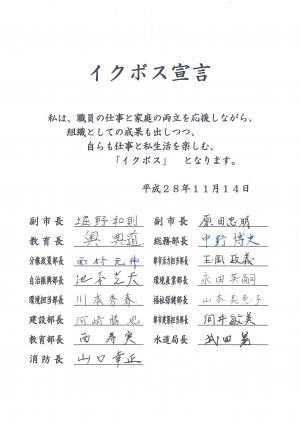 イクボス宣言
私は、職員の仕事と家庭の両立を応援しながら、
組織としての成果も出しつつ、
自らも仕事と私生活を楽しむ、
「イクボス」 となります。
平成28年11月14日
副市長 堀野和則 副市長 原田忠明
教育長 奥典道 総務部長 中野博史
分権政策部長 都市活力部長 玉岡政義
自治振興部長 池本芝大 環境産業部長 永田英嗣
環境担当部長 川本秀春 福祉保健部長 山本美恵子
建設部長 河崎勝也 都市実務担当部長 向井敏美
教育部長 西孝実 水道局長 武田
消防長 山口幸正